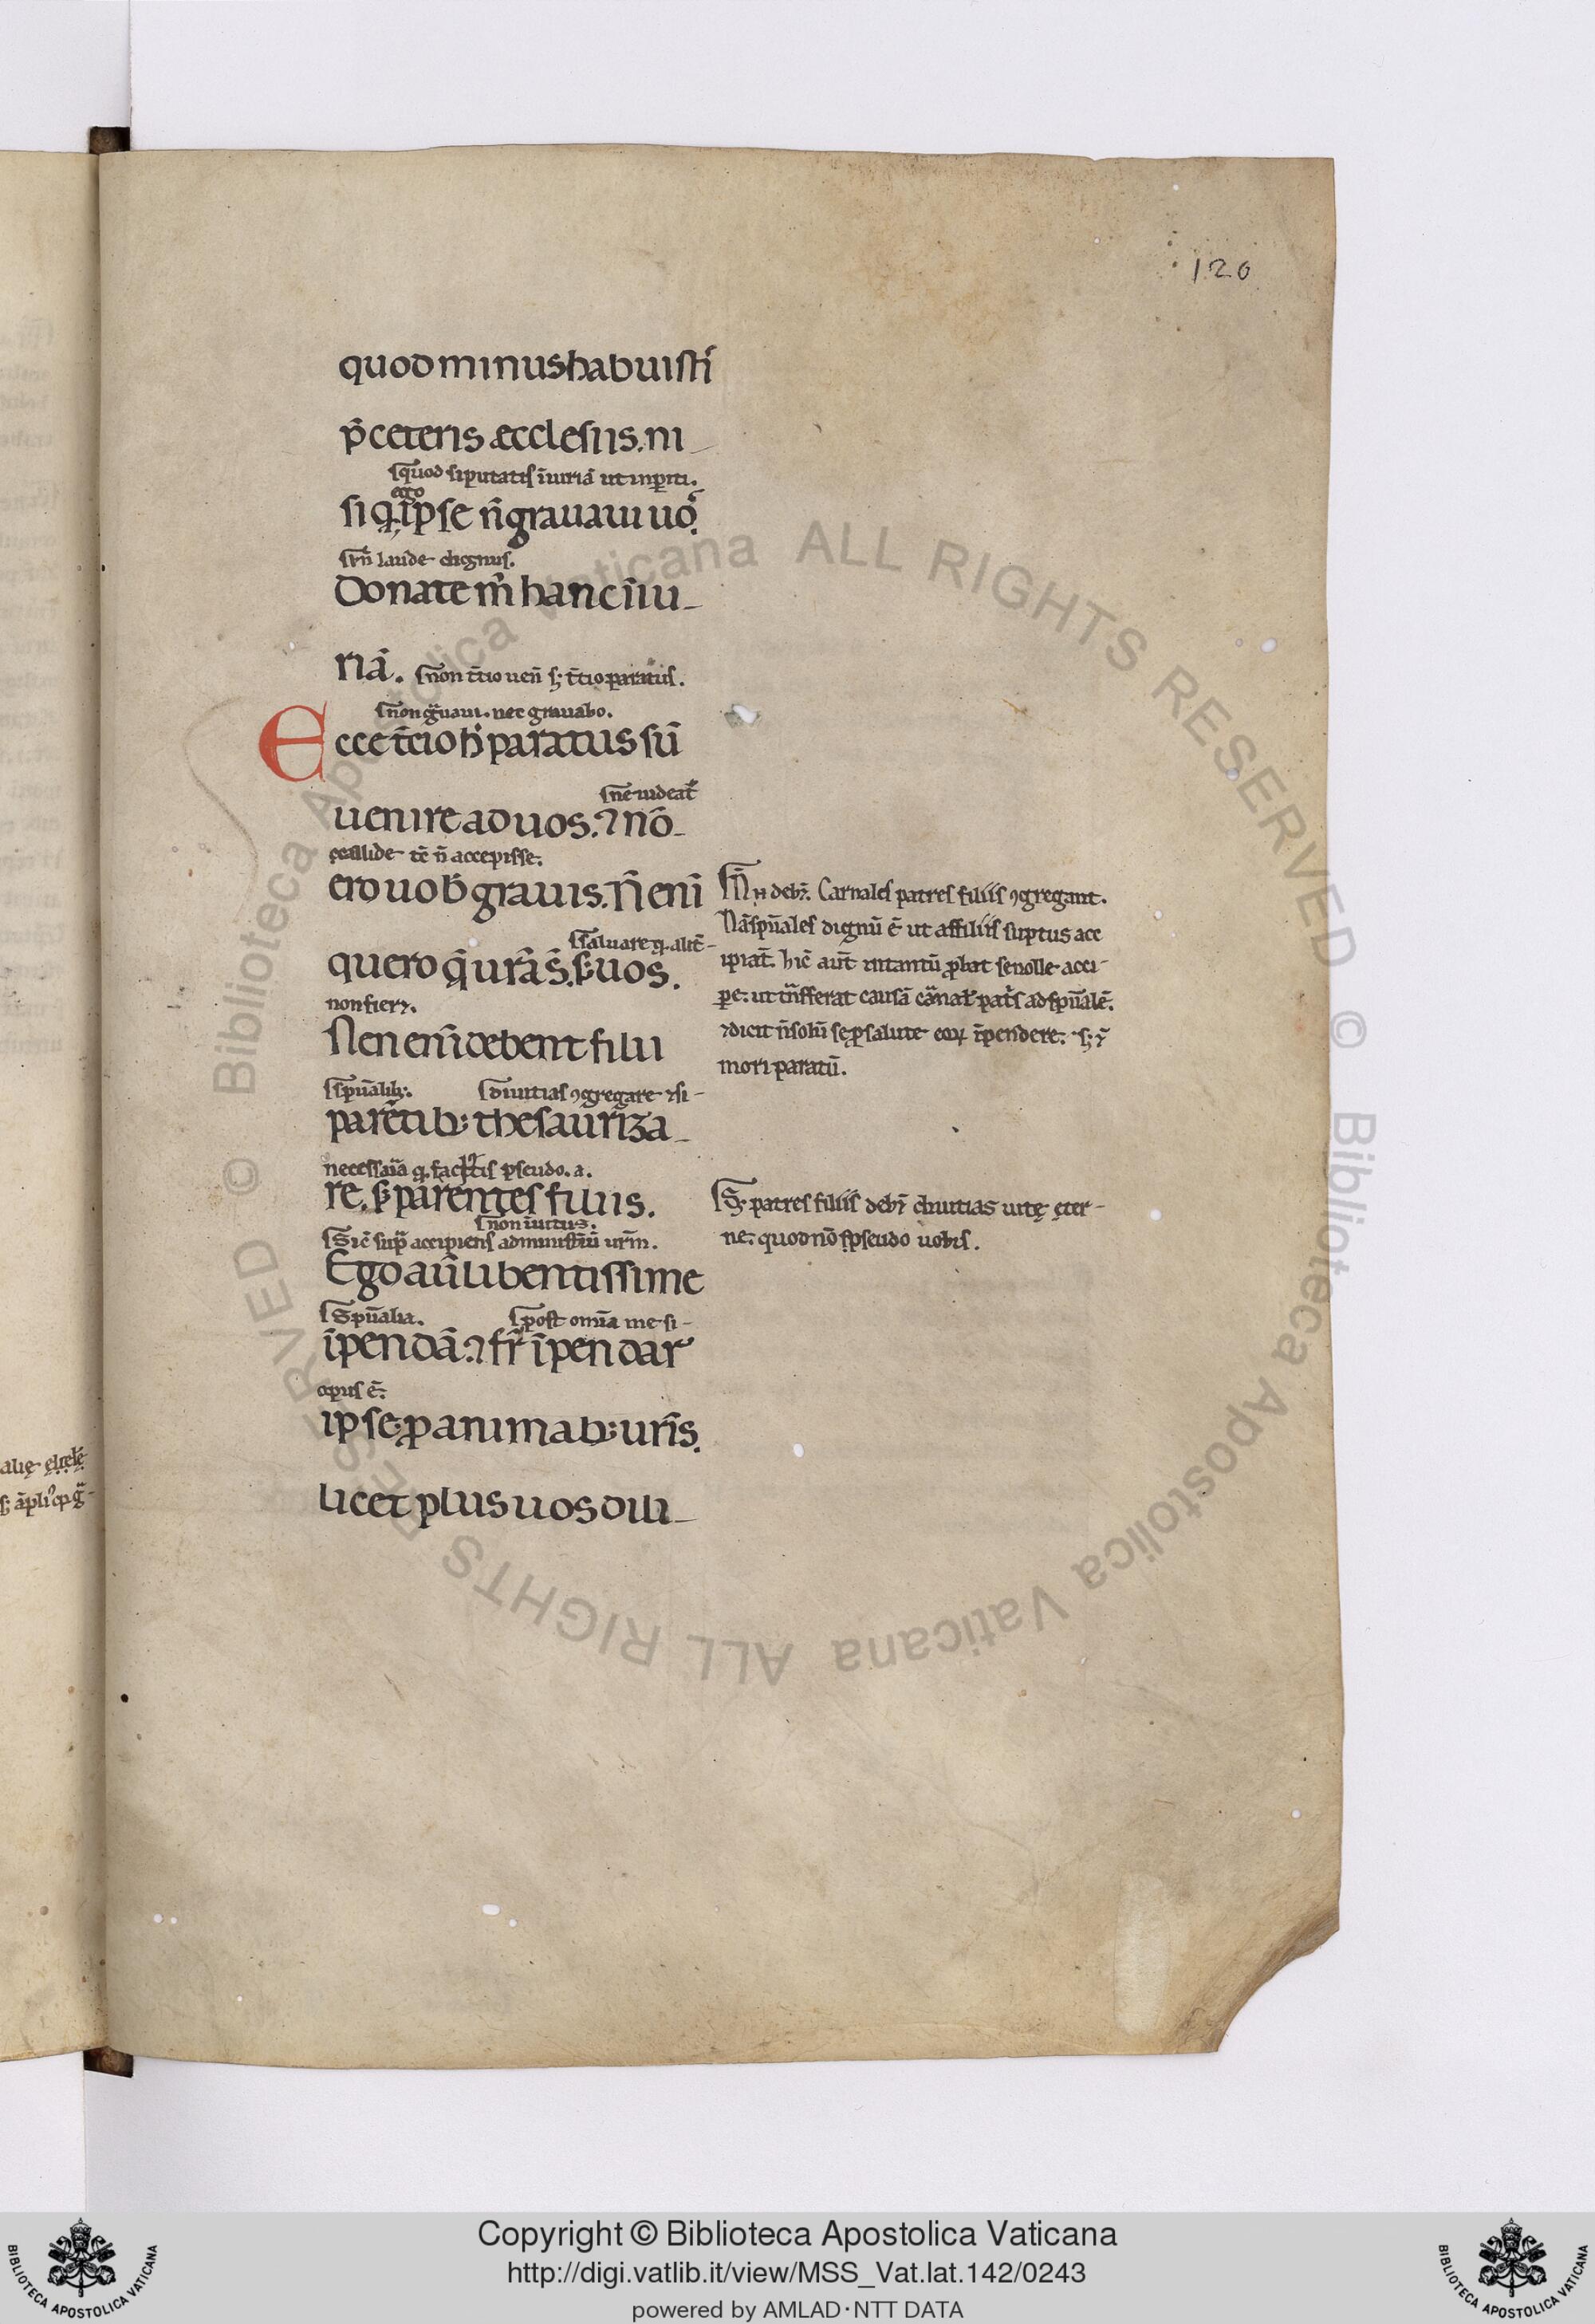 120
quod minus habuisti
p̄ ceteris æcclesiis. ni
quod si putatis iniuriā ut inpiti.
ego
si q ipse n̄ grauaui uo
laude dignus.
Donate m̄ hanc iniu
riā.
non t̄cio ueni s; t̄cio paratus.
non g̃uaui. nec grauabo.
Ecce t̄cio h̄ paratus sū
ne uideat̄
uenire ad uos. ⁊ nō
callide tc̄ n̄ accepisse.
ero uob̄ grauis. N̄ enī
saluare q. alit̄
quero q̄ ur̄a s̄. s; uos.
non fieret.
Nec enī debent filii
spūalib;.
diuitias ꝯgregare ⁊ si
parētib; thesauriza
necessaria q. pseudo. a.
re. s; parentes filiis.
non inuitus.
Sic̄ sup̄ accipiens administ̄iū ur̄m.
Ego aū libentissime
Spūalia.
post omīa me si
īpendā. ⁊ sr̄ īpendar
opus ē.
ipse ꝓ animab; ur̄is.
licet plus uos dili
N̄ n̄ deb;. Carnales patres filiis ꝯgregant.
Nā spūales dignū ē ut a filiis suptus acc
ipiat̄. hic̄ aūt intantū ꝓbat se nolle acci
pe. ut t̄nsferat causā carnal patris ad spūalē.
⁊ dicit n̄ solū se ꝓ salute eoꝝ īpendere. s; ⁊
mori paratū.
S; patres filiis deb; diuitias uitę ęter
ne. quod nō s̄ pseudo uobis.
Copyright © Biblioteca Apostolica Vaticana
http://digi.vatlib.it/view/MSS_Vat.lat.142/0243
powered by AMLAD·NTT DATA
BIBLIOTECA APOSTOLICA VATICANA
BIBLIOTECA APOSTOLICA VATICANA
© Biblioteca Apostolica Vaticana ALL RIGHTS RESERVED © Biblioteca Apostolica Vaticana ALL RIGHTS RESERVED